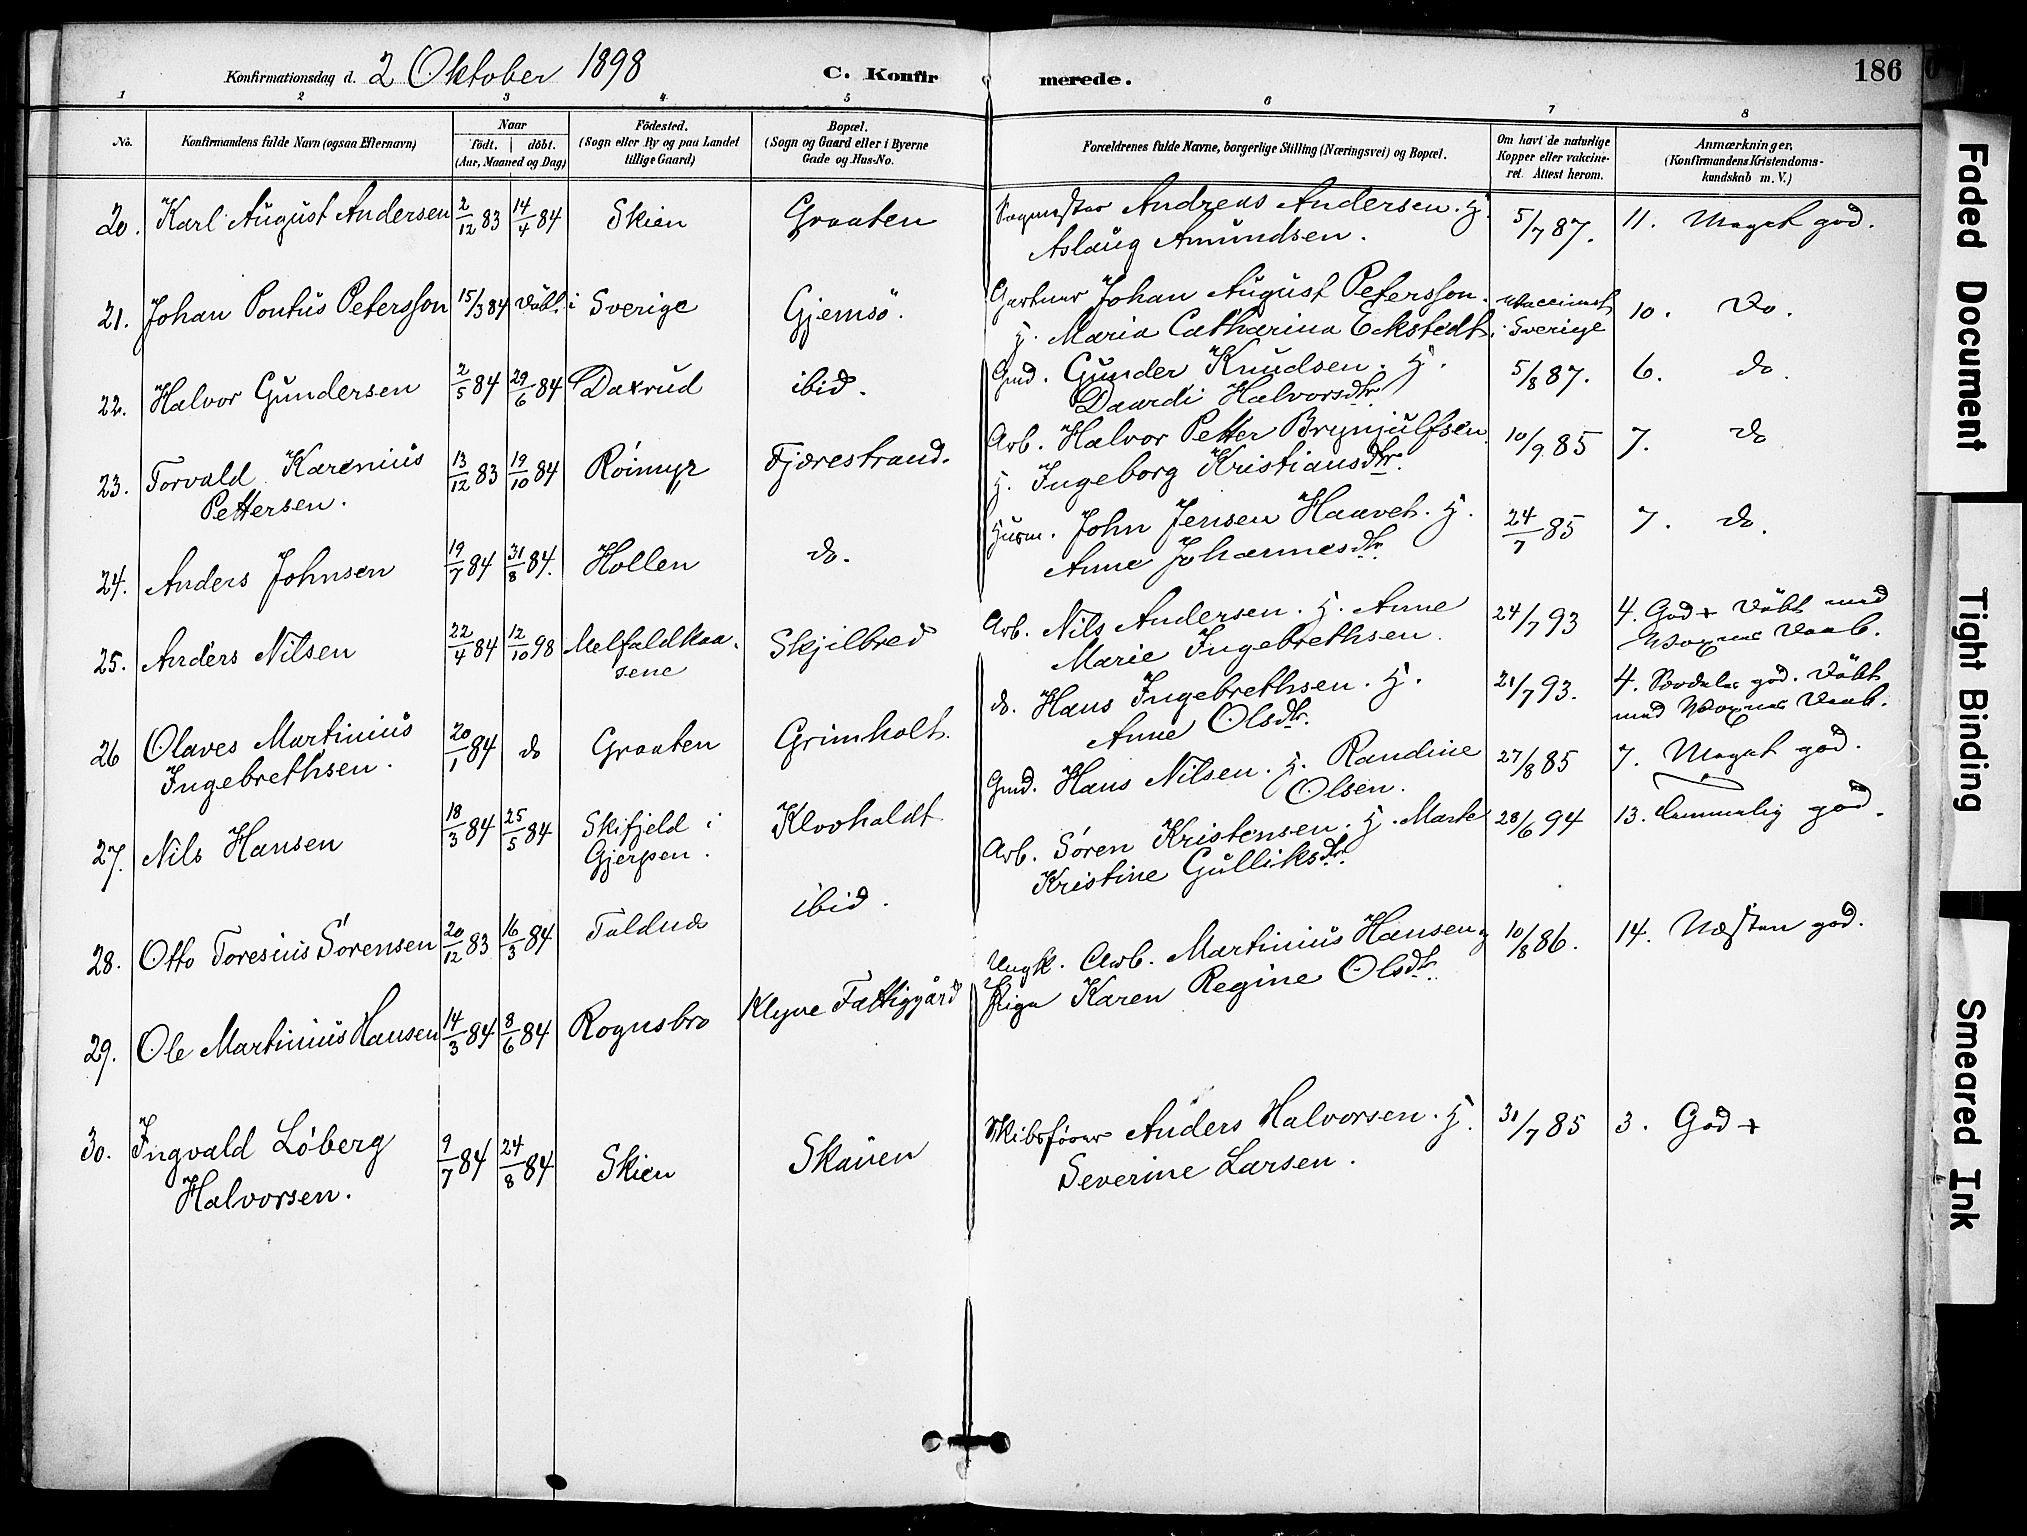 Konfirmationsdag d. 2 Oktober 1898 C. Konfirmerede. 186
1 2 3 4 5 6 7 8
No. Konfirmandens fulde Navn (ogsaa Efternavn) Naar födt. döbt. (Aar, Maaned og Dag) Födested. (Sogn eller By og paa Landet tillige Gaard) Bopæl. (Sogn og Gaard eller i Byerne Gade og Hus-No. Forældrenes fulde Navne, borgerlige Stilling (Næringsvei) og Bopæl. Om havt de naturlige Kopper eller vaccineret. Attest herom. Anmærkninger. (Konfirmandens Kristendomskundskab m. V.)
20. Karl August Andersen 2/12 83 14/4 84 Skien Graaten Sagmester Andreas Andersen. H. 5/7 87. 11. Meget god.
Aslaug Amundsen.
21. Johan Pontus Petersson 15/3 84 döbt i Sverige Gjemsö. Gartner Johan August Petersson. Vaccineret 10. Do.
H. Maria Catharina Eckstedt. i Sverige
22. Halvor Gundersen 2/5 84 29/6 84 Daxrud ibid. Gmd. Gunder Knudsen. H. 5/8 87. 6. do
Daardi Halvorsdtr
23. Torvald Karenius 13/12 83 19/10 84 Röimyr Fjærestrand. Arb. Halvor Petter Brynjulfsen 10/9 85 7. do
Pettersen. H. Ingeborg Kristiansdtr.
24. Anders Johnsen 19/7 84 31/8 84. Hollen do. Husm. John Jensen Haavet. H. 24/7 85 7. do.
Anne Johannesdtr
25. Anders Nilsen 22/4 84 12/10 98 Melfaldkaasene Skjilbred Arb. Nils Andersen. H. Anne 24/7 93 4. God + Döbt med
Marie Ingebrethsen. Voxnes Daab.
26 Olaves Martinius 20/1 84 do Graaten Grimholt. do. Hans Ingebrethsen. H. 21/7 93. 4. god. Döbt
Ingebrethsen. Anne Olsdtr. med Voxnes Daab.
27. Nils Hansen 18/3 84 25/5 84 Skifjeld i Klovholdt Gmd. Hans Nilsen. H. Randine 27/8 85 7. Meget god.
Gjerpen. Olsen.
28. Otto Toresius Sörensen 20/12 83 16/3 84 Foldnæs ibid. Arb. Sören Kristensen. H. Marte 28/6 94 13. Temmelig god.
Kristine Gulliksdtr.
29. Ole Martinius Hansen 14/3 84 8/6 84 Rognsbro Klyve Fattiggård Ungk. Arb. Martinius Hansen og 10/8 86. 14. Næsten god.
Pige Karen Regine Olsdtr.
30. Ingvald Löberg 9/7 84 24/8 84 Skien Skauen Skibsförer Anders Halvorsen. H. 31/7 85 3. God +
Halvorsen. Severine Larsen.
Faded Document
Tight Binding
Smeared Ink